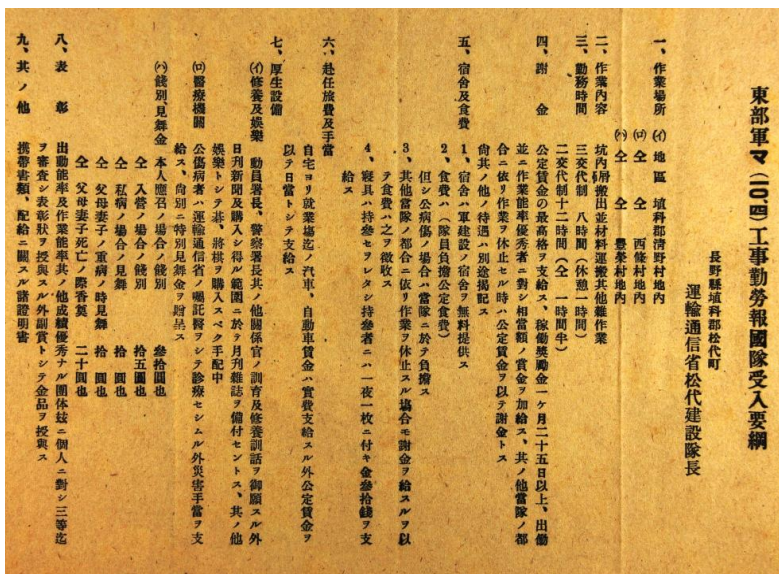 東部軍マ(一〇、四)工事勤勞報國隊受入要綱
長野縣埴科郡松代町
運輸通信省松代建設隊長
一、作業場所 (イ) 地區 埴科郡清野村地內
(ロ) 仝 仝 西條村地內
(ハ) 仝 仝 豊榮村地內
二、作業內容 坑內碎屑搬出並材料運搬其他雜作業
三、勤務時間 三交代制 八時間(休憩一時間)
二交代制十二時間(仝 一時間半)
四、謝金 公定賃金の最高格ヲ支給ス、稼働奬勵金一ケ月二十五日以上、出働
並ニ作業能率優秀者ニ對シ相當額ノ賞金ヲ加給ス、其ノ他當隊ノ都
合ニ依リ作業ヲ休止セル時ハ公定賃金ヲ以テ謝金トス
尙其ノ他ノ待遇ハ別途揭記ス
五、宿舍及食費 1、宿舍ハ軍建設ノ宿舍ヲ無料提供ス
2、食費ハ(隊員負擔公定食費)
但シ公病傷ノ場合ハ當隊ニ於テ負擔ス
3、其他當隊ノ都合ニ依リ作業ヲ休止スル場合モ謝金ヲ給スルヲ以
テ食費ハ之ヲ徵收ス
4、寢具ハ持參セラレタシ持參者ニハ一夜一枚ニ付キ金參拾錢ヲ支
給ス
六、赴任旅費及手當
自宅ヨリ就業場迄ノ汽車、自動車賃金ハ實費支給スル外公定賃金ヲ
以テ日當トシテ支給ス
七、厚生設備
(イ)修養及娛樂 動員署長、警察署長其ノ他關係官ノ訓育及修養訓話ヲ御願スル外
日刊新聞及購入シ得ル範圍ニ於テ月刊雜誌ヲ備付セントス、其ノ他
娛樂トシテ碁、將棋ヲ購入スベク手配中
(ロ)醫療機關 公傷病者ハ運輸通信省ノ囑託醫ヲシテ診療セシムル外災害手當ヲ支
給ス、尙別ニ特別見舞金ヲ贈呈ス
(ハ)餞別、見舞金 本人應召ノ場合ノ餞別 參拾圓也
仝 入營ノ場合ノ餞別 拾五圓也
仝 私病ノ場合ノ見舞 拾圓也
仝 父母妻子ノ重病ノ時見舞 拾圓也
仝 父母妻子死亡ノ際香奠 二十圓也
八、表彰 出動能率及作業能率其ノ他成績優秀ナル團体玆ニ個人ニ對シ三等迄
ヲ審査シ表彰狀ヲ授與スル外副賞トシテ金品ヲ授與ス
九、其ノ他 携帶書類、配給ニ關スル諸證明書